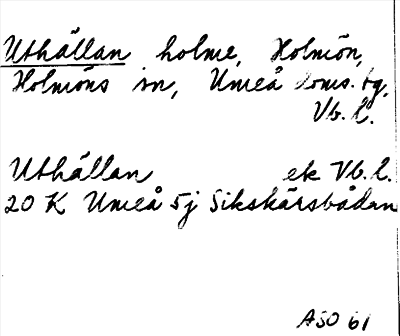 Uthällan holme, Holmön,
Holmöns sn, Umeå doms. tg,
Vb. l.
Uthällan ek Vb. l.
20 K Umeå 5j Sikskärsbådan
ASO 61